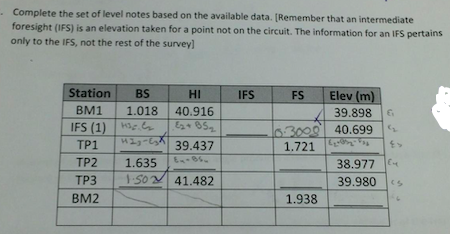 Complete the set of level notes based on the available data. [Remember that an intermediate
foresight (IFS) is an elevation taken for a point not on the circuit. The information for an IFS pertains
only to the IFS, not the rest of the survey]
Station BS HI IFS FS Elev (m)
BM1 1.018 40.916 39.898 E1
IFS (1) E2+BS2 0.3008 40.699 E2
TP1 39.437 1.721 E3
TP2 1.635 38.977 E4
TP3 1.502 41.482 39.980 E5
BM2 1.938